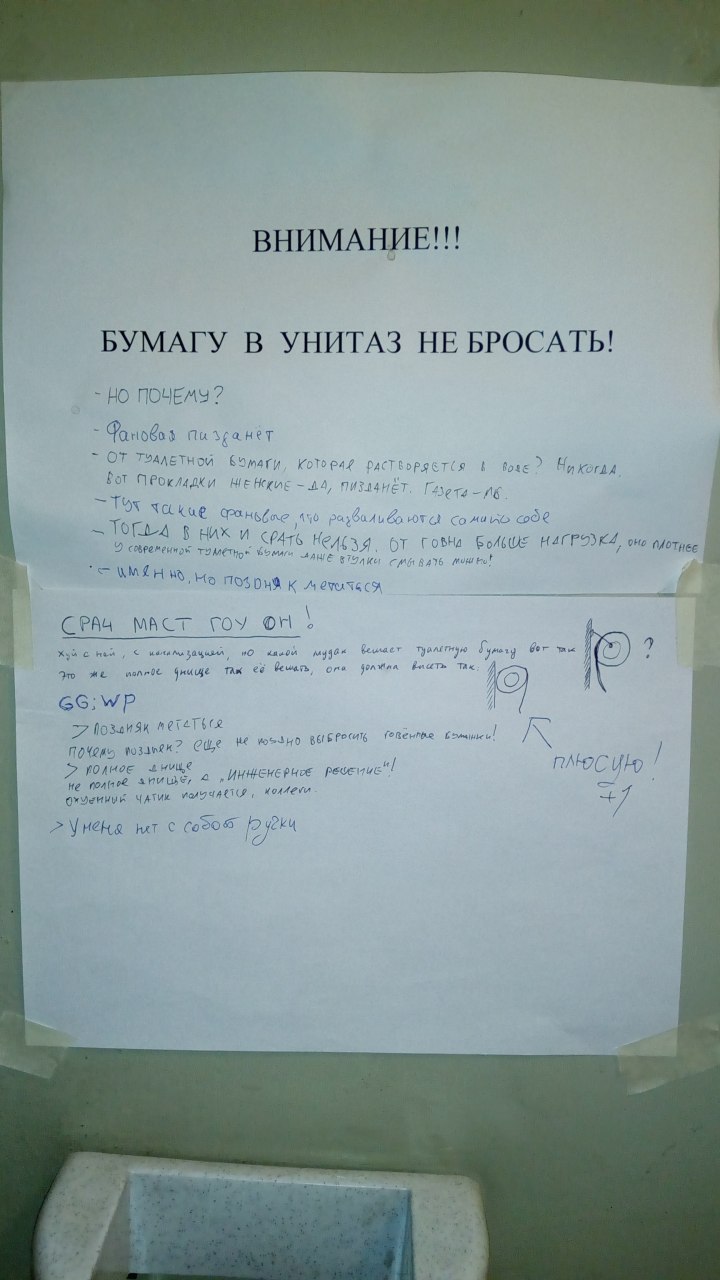 ВНИМАНИЕ!!!
БУМАГУ В УНИТАЗ НЕ БРОСАТЬ!
- НО ПОЧЕМУ?
- Фановая пизданёт
- ОТ ТУАЛЕТНОЙ БУМАГИ, КОТОРАЯ РАСТВОРЯЕТСЯ В ВОДЕ? НИКОГДА.
ВОТ ПРОКЛАДКИ ЖЕНСКИЕ - ДА, ПИЗДАНЁТ. ГАЗЕТА -
- Тут такие фановые, что разваливаются сами по себе
- ТОГДА В НИХ И СРАТЬ НЕЛЬЗЯ. ОТ ГОВНА БОЛЬШЕ НАГРУЗКА, ОНО ПЛОТНЕЕ
У СОВРЕМЕННОЙ ТУАЛЕТНОЙ БУМАГИ ДАЖЕ ВТУЛКИ СМЫВАТЬ МОЖНО!
- ИМЕННО, НО ПОЗДНЯК МЕТАТЬСЯ
СРАЧ МАСТ ГОУ ОН!
Хуй с ней, с канализацией, но какой мудак вешает туалетную бумагу вот так ?
Это же полное днище так её вешать, она должна висеть так:
GG; WP
> ПОЗДНЯК МЕТАТЬСЯ
ПОЧЕМУ ПОЗДНЯК? ЕЩЕ НЕ ПОЗДНО ВЫБРОСИТЬ ГОВЁННЫЕ БУМАЖКИ!
> ПОЛНОЕ ДНИЩЕ
НЕ ПОЛНОЕ ДНИЩЕ, А „ИНЖЕНЕРНОЕ РЕШЕНИЕ"!
ОХУЕННЫЙ ЧАТИК ПОЛУЧАЕТСЯ, КОЛЛЕГИ.
ПЛЮСУЮ!
+1
> У меня нет с собой ручки